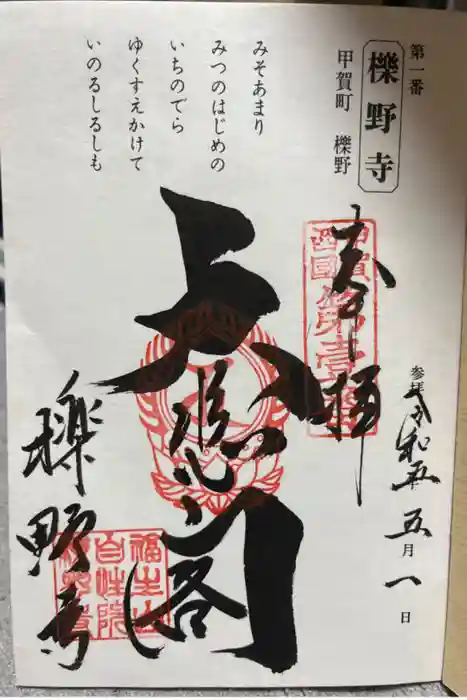 第一番
櫟野寺
甲賀町 櫟野
みそあまり
みつのはじめの
いちのでら
ゆくすえかけて
いのるしるしも
奉拝
参拝 令和五年五月一日
甲賀西國第壹番
大悲閣
櫟野寺
福生山
自性院
櫟野寺